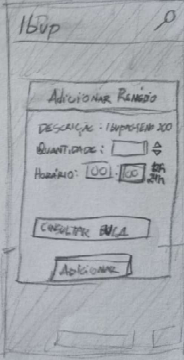 Ibup
ADICIONAR REMÉDIO
DESCRIÇÃO: IBUPROFENO 200
QUANTIDADE:
HORÁRIO: 00 : 00
24h
CONSULTAR BULA
ADICIONAR